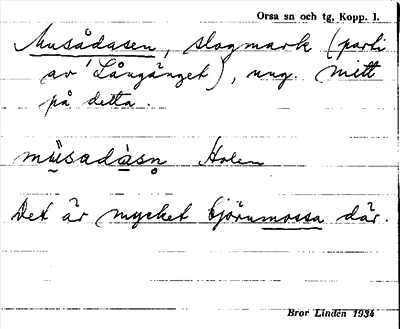 Orsa sn och tg, Kopp. l.
Musådasen, slogmark (parti
av 'Långänget), ung. mitt
på detta.
mùsadàsn̥ Holen
Det är mycket björnmossa där.
Bror Lindén 1934